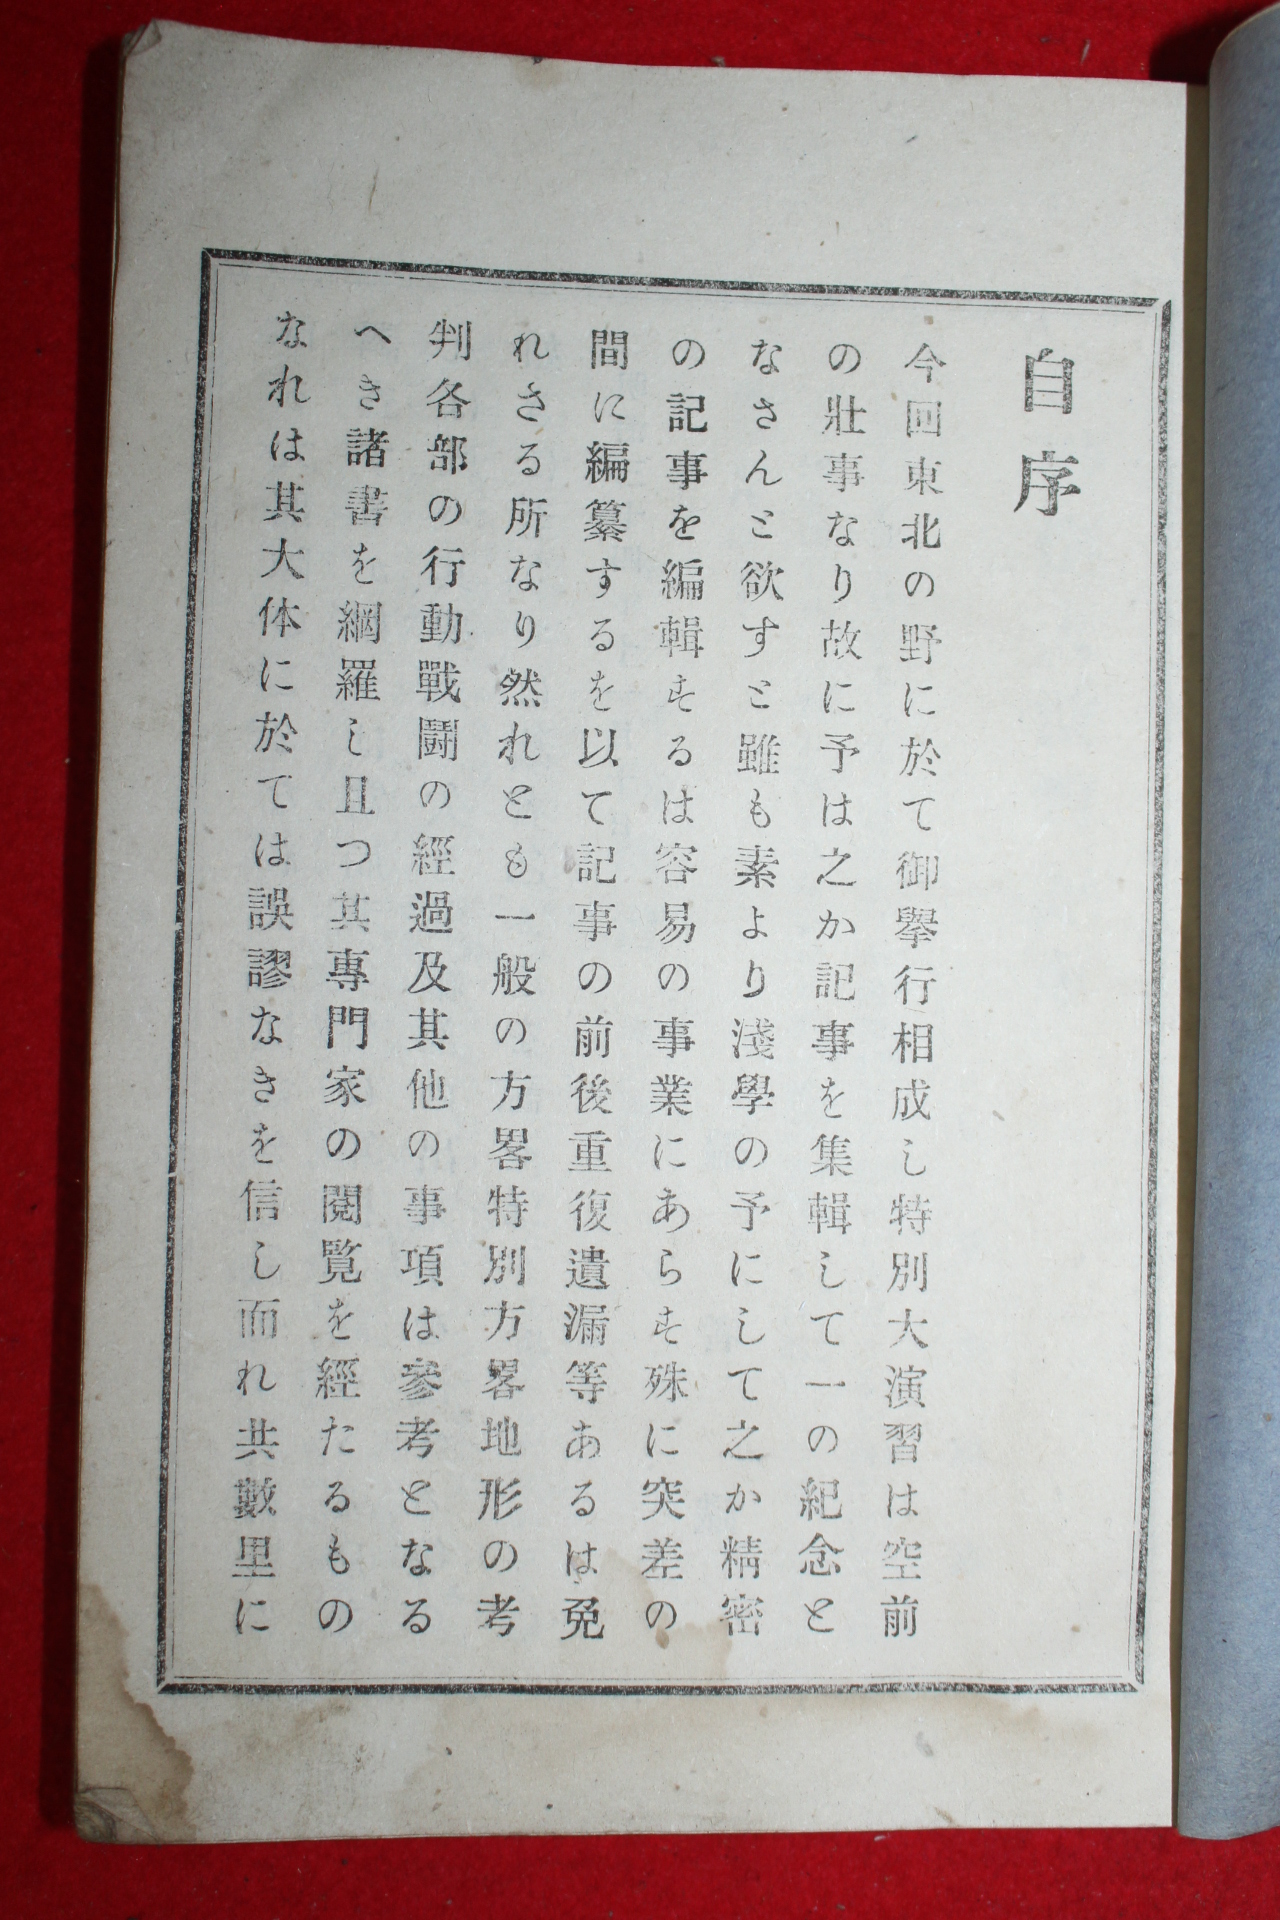 自序
今回東北の野に於て御擧行相成し特別大演習は空前
の壯事なり故に予は之か記事を集輯して一の紀念と
なさんと欲すと雖も素より淺學の予にして之か精密
の記事を編輯するは容易の事業にあらす殊に突差の
間に編纂するを以て記事の前後重復遺漏等あるは免
れさる所なり然れとも一般の方畧特別方畧地形の考
判各部の行動戰鬪の經過及其他の事項は參考となる
へき諸書を網羅し且つ其專門家の閱覧を經たるもの
なれは其大体に於ては誤謬なきを信し而れ共數里に